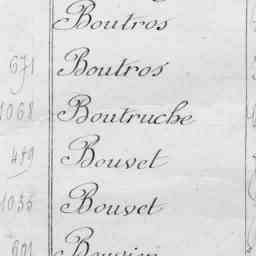 Boutros
671 Boutros
1068 Boutruche
489 Bouvet
1035 Bouvet
Bouvier